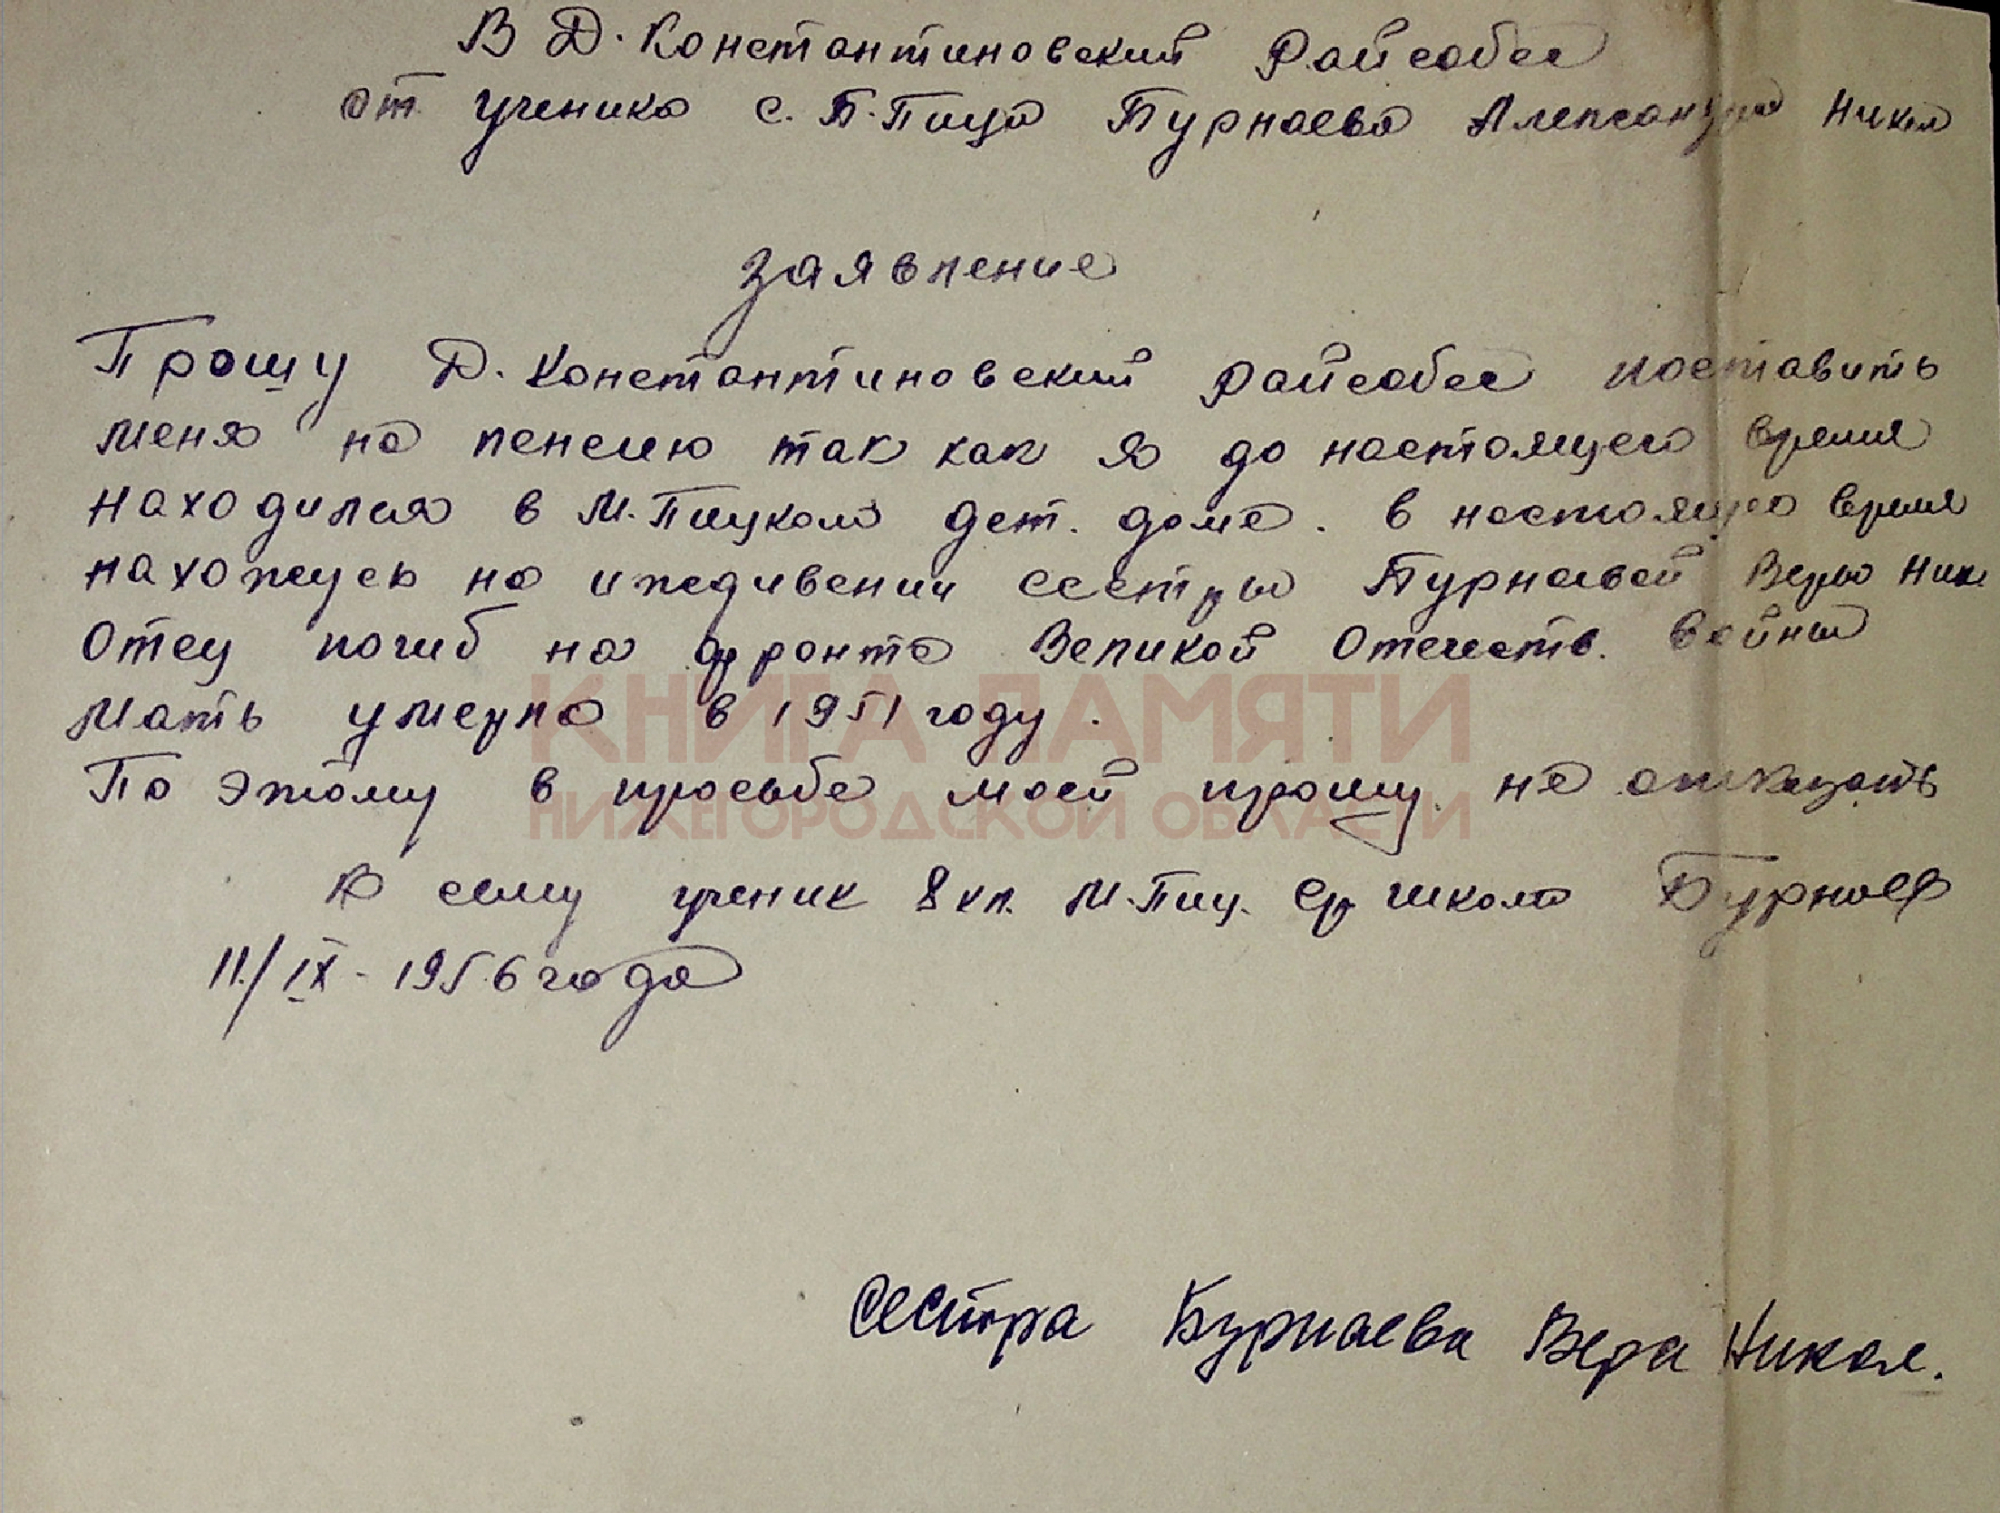 В Д. Константиновский Райсобес
от ученика с. Б-Пица Бурнаева Александра Никол
Заявление
Прошу Д. Константиновский райсобес поставить
меня на пенсию так как я до настоящего время
находился в М. Пицком дет. доме. в настоящее время
нахожусь на иждивении сестры Бурнаевой Веры Ник
Отец погиб на фронте Великой Отечеств. Войны
Мать умерла в 1951 году.
КНИГА ПАМЯТИ
По этому в просьбе моей прошу не отказать
НИЖЕГОРОДСКОЙ ОБЛАСТИ
К сему ученик 8 кл. М.Пиц. Ср школы Бурнаев
11/IX-1956 года
Сестра Бурнаева Вера Никол.